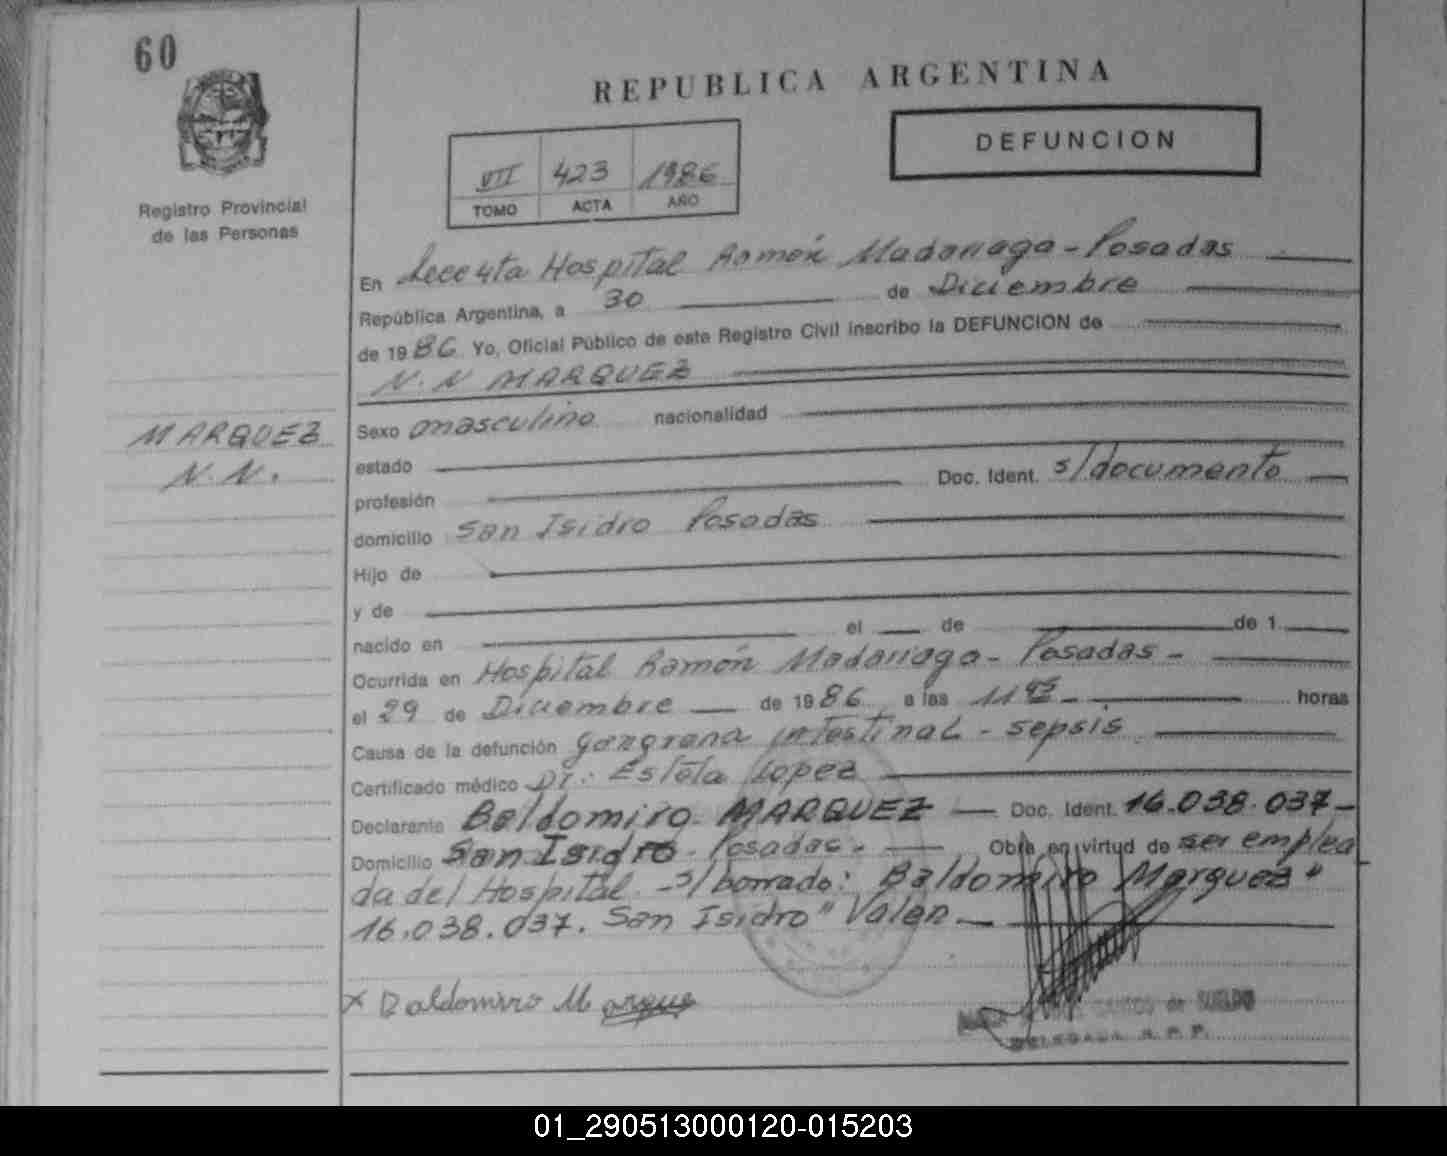 60
REPUBLICA ARGENTINA
DEFUNCION
VII 423 1986
TOMO ACTA AÑO
Registro Provincial
de las Personas
En Hospital Ramón Madariaga - Posadas
República Argentina, a 30 de Diciembre
de 1986 Yo, Oficial Público de este Registro Civil inscribo la DEFUNCION de
N.N MARQUEZ
MARQUEZ
N.N.
Sexo masculino nacionalidad
estado
profesión Doc. Ident. s/documento
domicilio San Isidro Posadas
Hijo de
y de
nacido en el de de 1
Ocurrida en Hospital Ramón Madariaga - Posadas -
el 29 de Diciembre de 1986 a las 11 45 - horas
Causa de la defunción gangrana intestinal - sepsis
Certificado médico Dr. Lopez
Declarante Baldomiro MARQUEZ Doc. Ident. 16.038.037 -
Domicilio San Isidro - Posadas - Obra en virtud de ser emplea
da del Hospital - s/borrado: Baldomiro Marquez"
16.038.037. San Isidro" Valen
x Baldomiro Marque
de SUELDO
DELEGADA R. P. P.
01_290513000120-015203